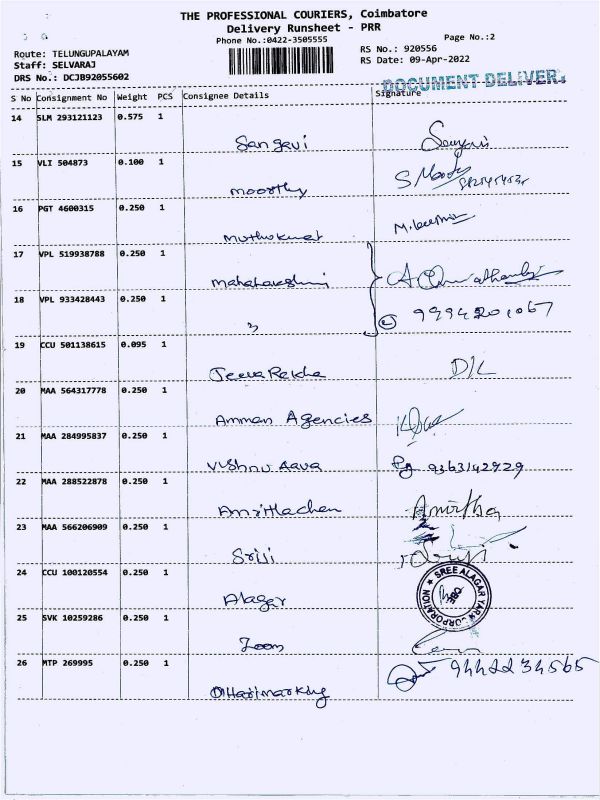 THE PROFESSIONAL COURIERS, Coimbatore
Delivery Runsheet - PRR
Phone No.:0422-3505555
Page No.:2
Route: TELUNGUPALAYAM
RS No.: 920556
Staff: SELVARAJ
RS Date: 09-Apr-2022
DRS No.: DCJB92055602
DOCUMENT DELIVER
S No Consignment No Weight PCS Consignee Details Signature
14 SLM 293121123 0.575 1
Sangavi
15 VLI 504873 0.100 1
moorthy S
16 PGT 4600315 0.250 1
muthukumar M.
17 VPL 519938788 0.250 1
Mahalakshmi
18 VPL 933428443 0.250 1
9994201067
19 CCU 501138615 0.095 1
Jeeva Rekha D/L
20 MAA 564317778 0.250 1
Amman Agencies
21 MAA 284995837 0.250 1
Vishnu Aava 9363142929
22 MAA 288522878 0.250 1
Amrithachen Amirtha
23 MAA 566206909 0.250 1
Sriji
24 CCU 100120554 0.250 1
Alagar
SREE ALAGAR YARN CORPORATION
25 SVK 10259286 0.250 1
Zoom
26 MTP 269995 0.250 1
9442234565